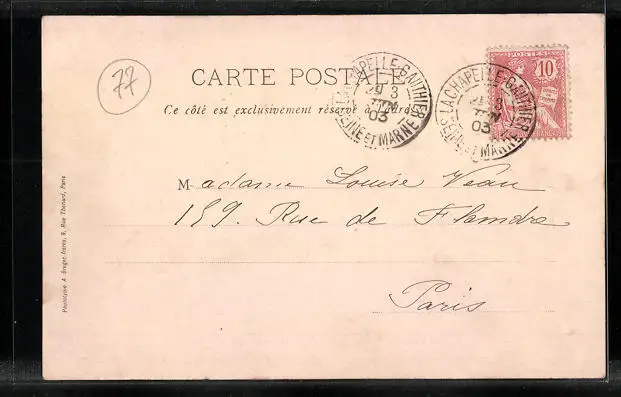 77
CARTE POSTALE
Ce côté est exclusivement réservé à l'adresse
LA CHAPELLE-GAUTHIER
3
03
SEINE ET MARNE
LA CHAPELLE-GAUTHIER
3
03
SEINE ET MARNE
POSTES
10
Madame Louise Veau
159. Rue de Flandre
Paris
Phototypie A. Breger frères, 9, Rue Thénard, Paris